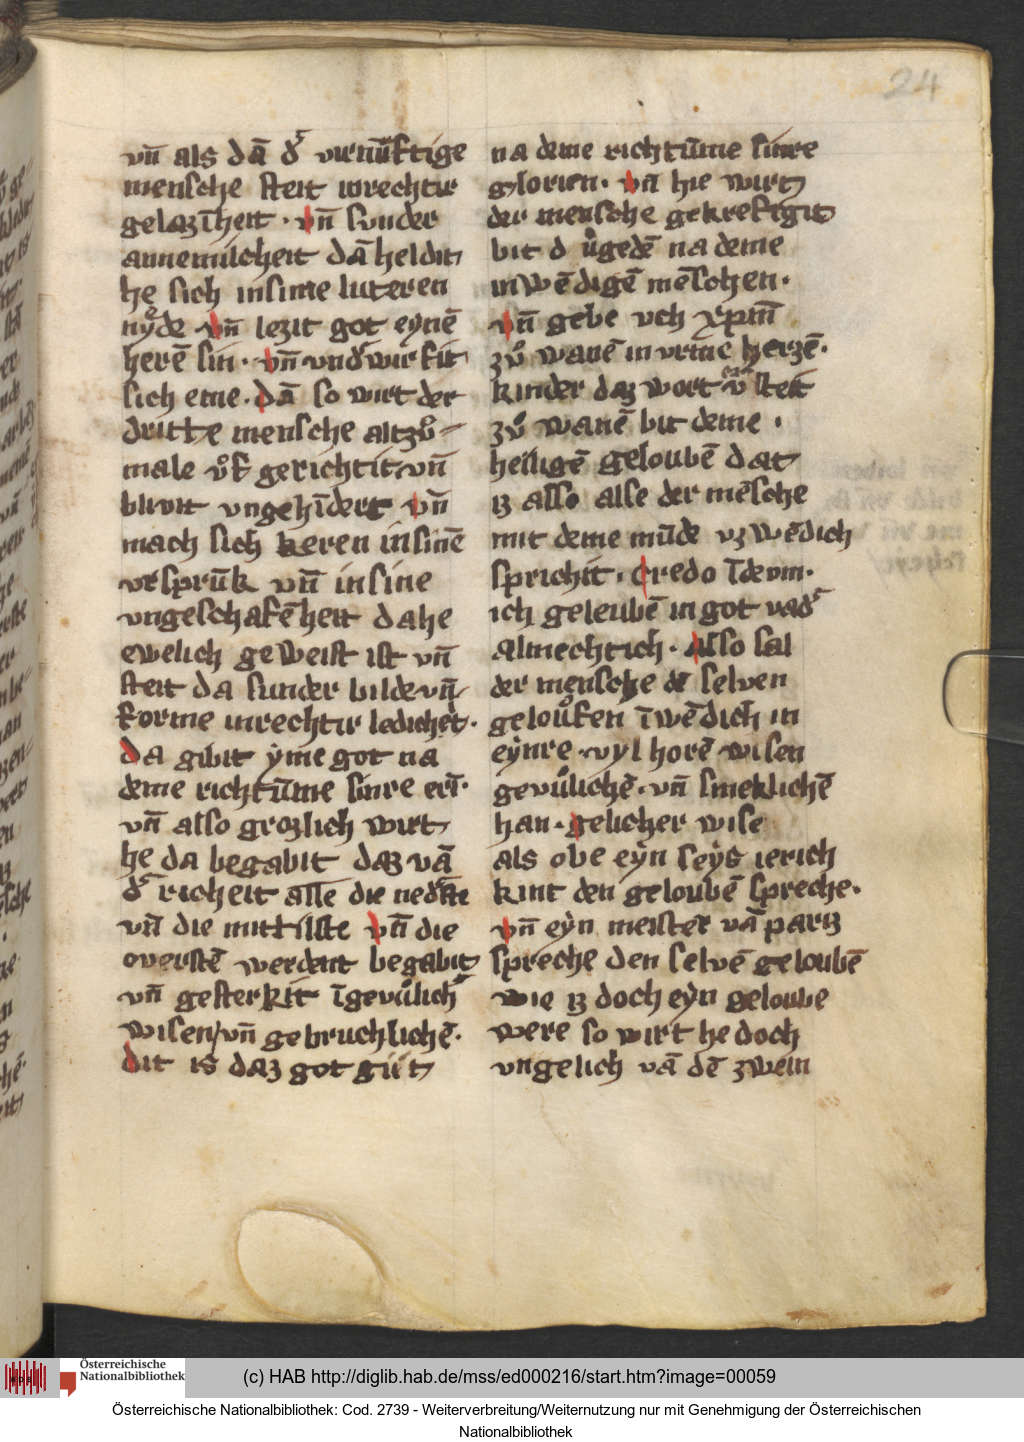 24
vn̄ als dā d͛ virnu̍ftige
mensche steit inrechtir
gelazīheit · vn̄ sunder
annemilcheit dā heldit
he sich insinie luteren
nyͤde vn̄ lezit got eynē
herē sin · vn̄ vnd͛wirfit
sich eme · dā so wirt der
dritte mensche altzuͦ
male vͦf gerichtit vn̄
blivit vngehīdert vn̄
mach sich keren insinē
vrsprūk vn̄ insine
vngeschafēheit da he
ewelich geweist ist vn̄
steit da sunder bilde vn̄
forme inrechtir ledichet·
da gibit ẏme got na
deme richtūme sinre erī·
vn̄ also grozlich wirt
he da begabit daz vā
d͛ richeit alle die ned͛ste
vn̄ die mittilste vn̄ die
overstē werdent begabit
vn̄ gesterkit īgevuͦlich͛
wisen / vn̄ gebruchlichē·
dit is daz got giit
na deme richtūme sinre
glorien · vn̄ hie wirt
der mensche gekreftigit
bit d uͦgedē na deme
inwēdigē mēschen·
vn̄ gebe vch xpm̄
zuͦ wanē in vrme herzē·
kinder daz wort v̄ steit
zuͦ wanē bit deme ·
heiligē geloubē dat
iz also alse der mēsche
mit deme mūde vz wēdich
sprichit · credo īdeum·
ich geleubē in got vad͛
almechtich · also sal
der mensche dē selven
gelouͦfen īwēdich in
eẏnre · vyl horē wisen
gevuͦlichē · vn̄ smeklichē
han · gelicher wise
als obe eẏn seẏs ierich
kint den geloubē spreche·
vn̄ eẏn meister vā pariz
spreche den selvē geloubē
wie iz doch eẏn geloube
were so wirt he doch
vngelich vā dē zwein
Österreichische
Nationalbibliothek
(c) HAB http://diglib.hab.de/mss/ed000216/start.htm?image=00059
Österreichische Nationalbibliothek: Cod. 2739 - Weiterverbreitung/Weiternutzung nur mit Genehmigung der Österreichischen
Nationalbibliothek